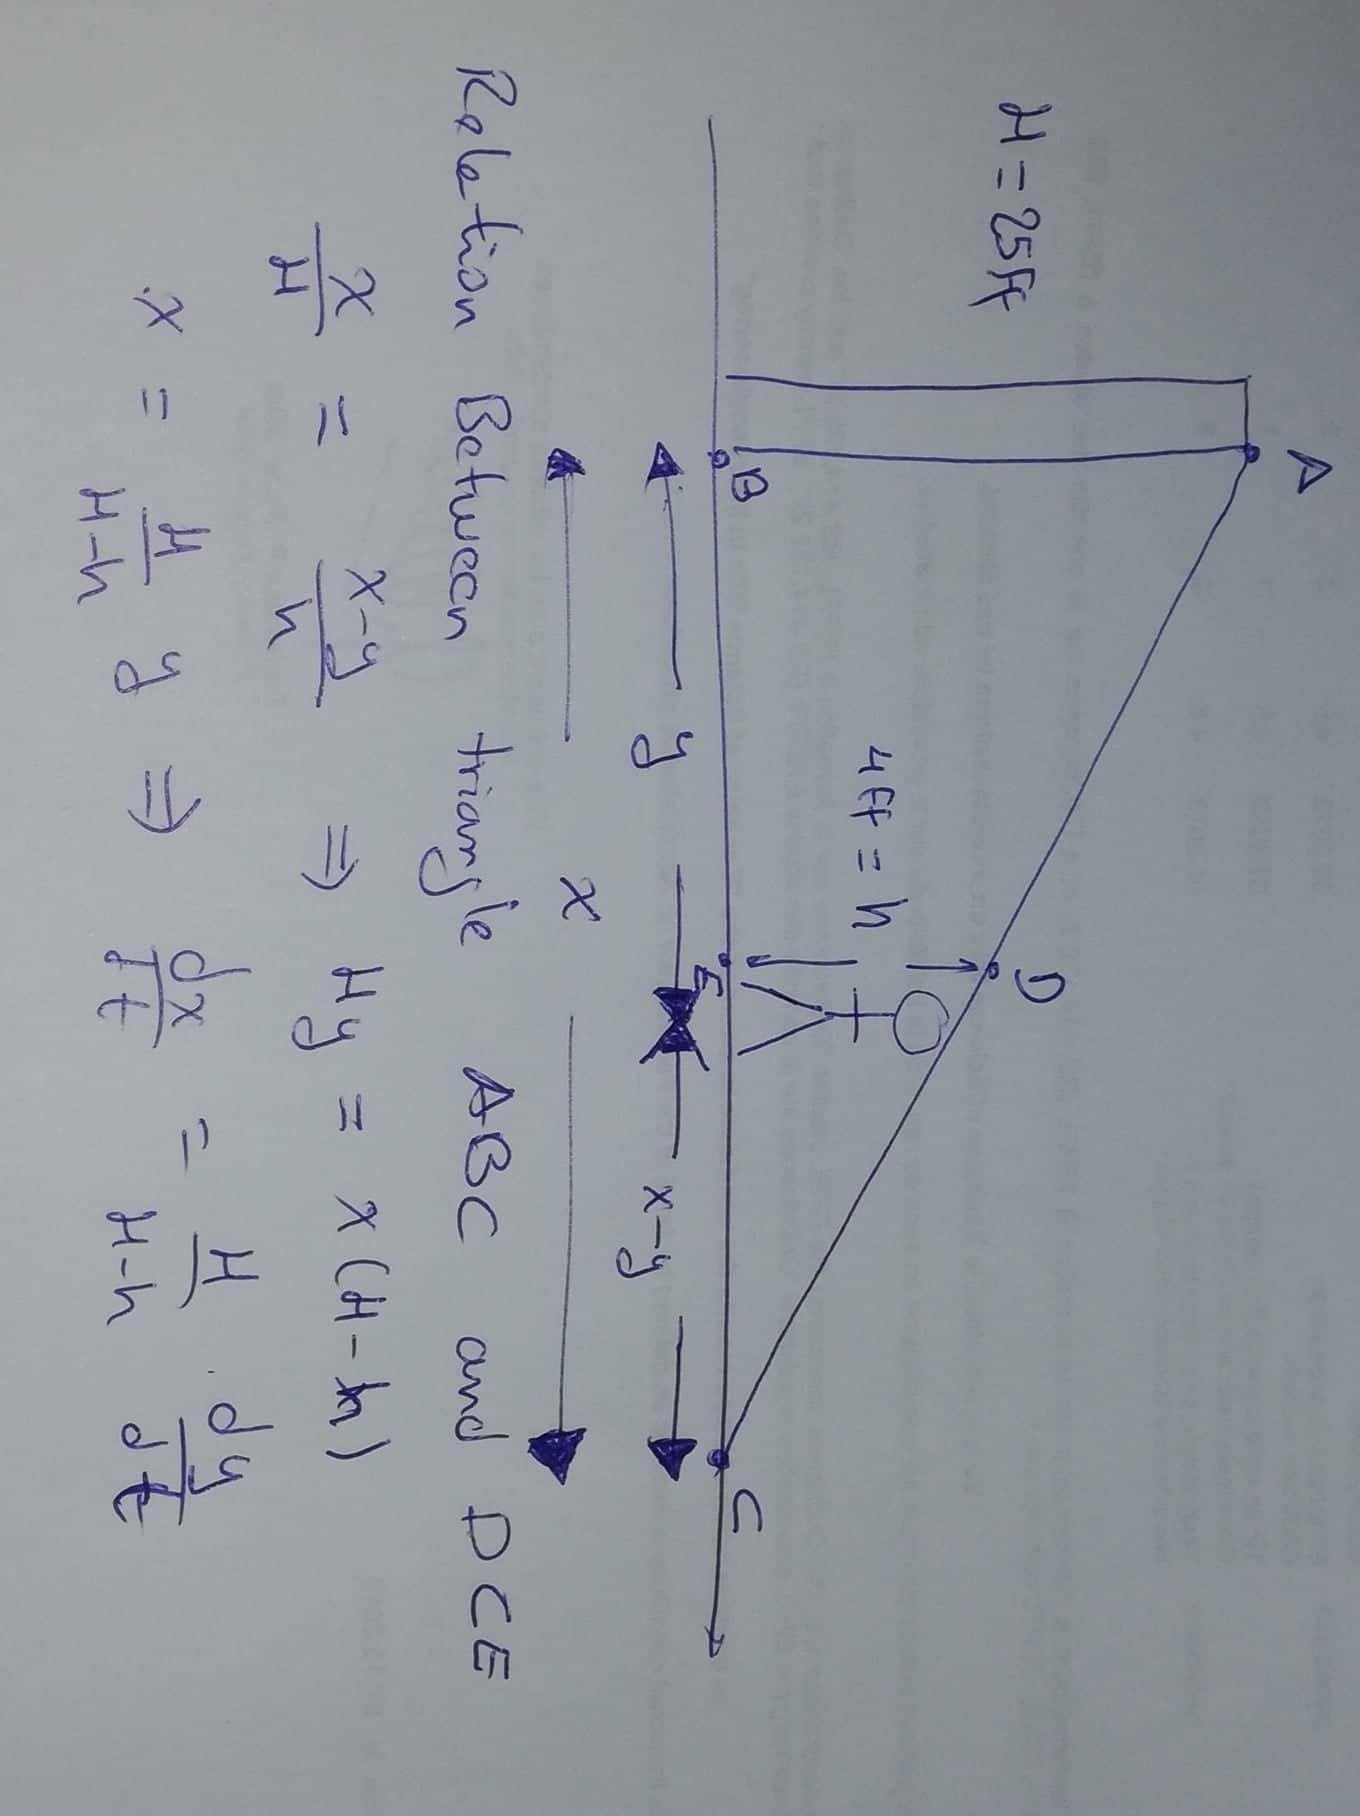 A
H = 25ft
D
4ft = h
B
E
C
y
x-y
x
Relation Between triangle ABC and DCE
x/H = x-y/h ⇒ Hy = x(H-h)
x = H/H-h y ⇒ dx/dt = H/H-h . dy/dt